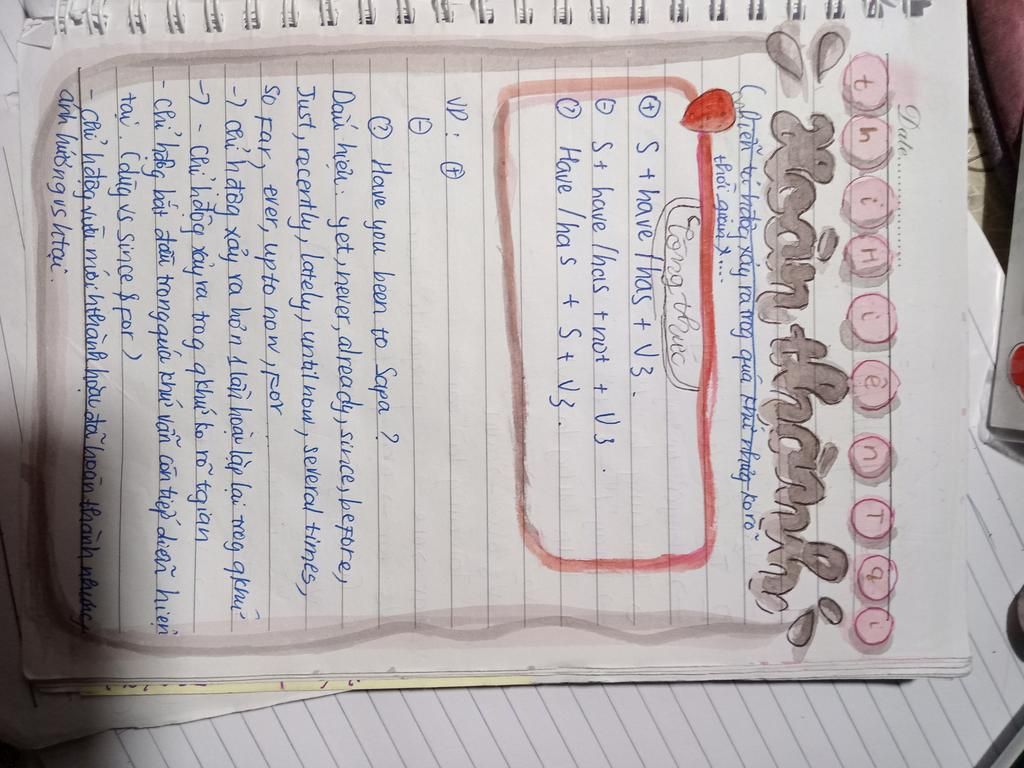 Date
thì Hiện Tại
Hoàn thành
(Diễn tả hđộng xảy ra trog quá khứ nhưng ko rõ
thời gian)...
Công thức
(+) S + have/has + V3.
(-) S + have/has + not + V3.
(?) Have/has + S + V3.
VD: (+)
(-)
(?) Have you been to Sapa?
Dấu hiệu: yet, never, already, since, before,
Just, recently, lately, until now, several times,
so far, ever, up to now, for
-) chỉ hđộng xảy ra hơn 1 lần hoặc lặp lại trog qkhứ
-) - chỉ hđộng xảy ra trog qkhứ ko rõ tgian
- chỉ hđộng bắt đầu trong quá khứ vẫn còn tiếp diễn hiện
tại (dùg vs since & for)
- chỉ hđộng vừa mới hthành hoặc đã hoàn thành nhưng
ảnh hưởng vs htại.